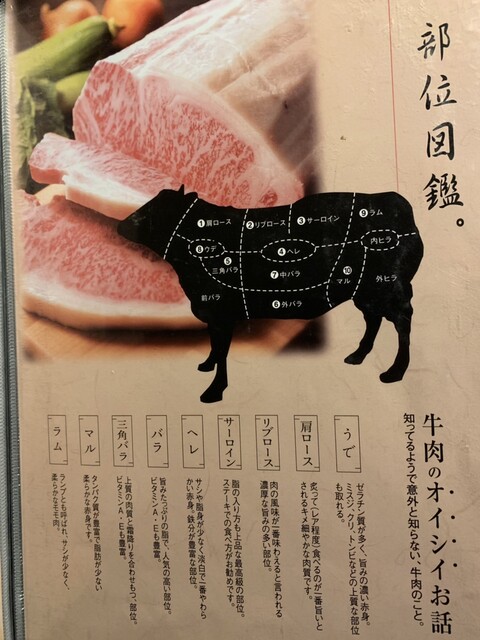 部位図鑑。
❶肩ロース
❷リブロース
❸サーロイン
❾ラム
❽ウデ
❹ヘレ
内ヒラ
❺三角バラ
❼中バラ
❿マル
外ヒラ
前バラ
❻外バラ
牛肉のオイシイお話
知ってるようで意外と知らない、牛肉のこと。
うで
ゼラチン質が多く、旨みの濃い赤身。
ミスジ、クリ、トンビなどの上質な部位
も取れる。
肩ロース
炙って(レア程度)食べるのが一番旨いと
されるキメ細やかな肉質です。
リブロース
肉の風味が一番味わえると言われる
濃厚な旨みの多い部位。
サーロイン
脂の入り方も上品な最高級の部位。
ステーキでの食べ方がお勧めです。
ヘレ
サシや脂身が少なく淡白で一番やわら
かい赤身。鉄分が豊富な部位。
バラ
旨みたっぷりの脂で、人気の高い部位。
ビタミンA・Eも豊富。
三角バラ
上質の肉質と霜降りを合わせもつ、部位。
ビタミンA・Eも豊富。
マル
タンパク質が豊富で脂肪が少ない
柔らかな赤身です。
ラム
ランプとも呼ばれ、サシが少なく、
柔らかなモモ肉。